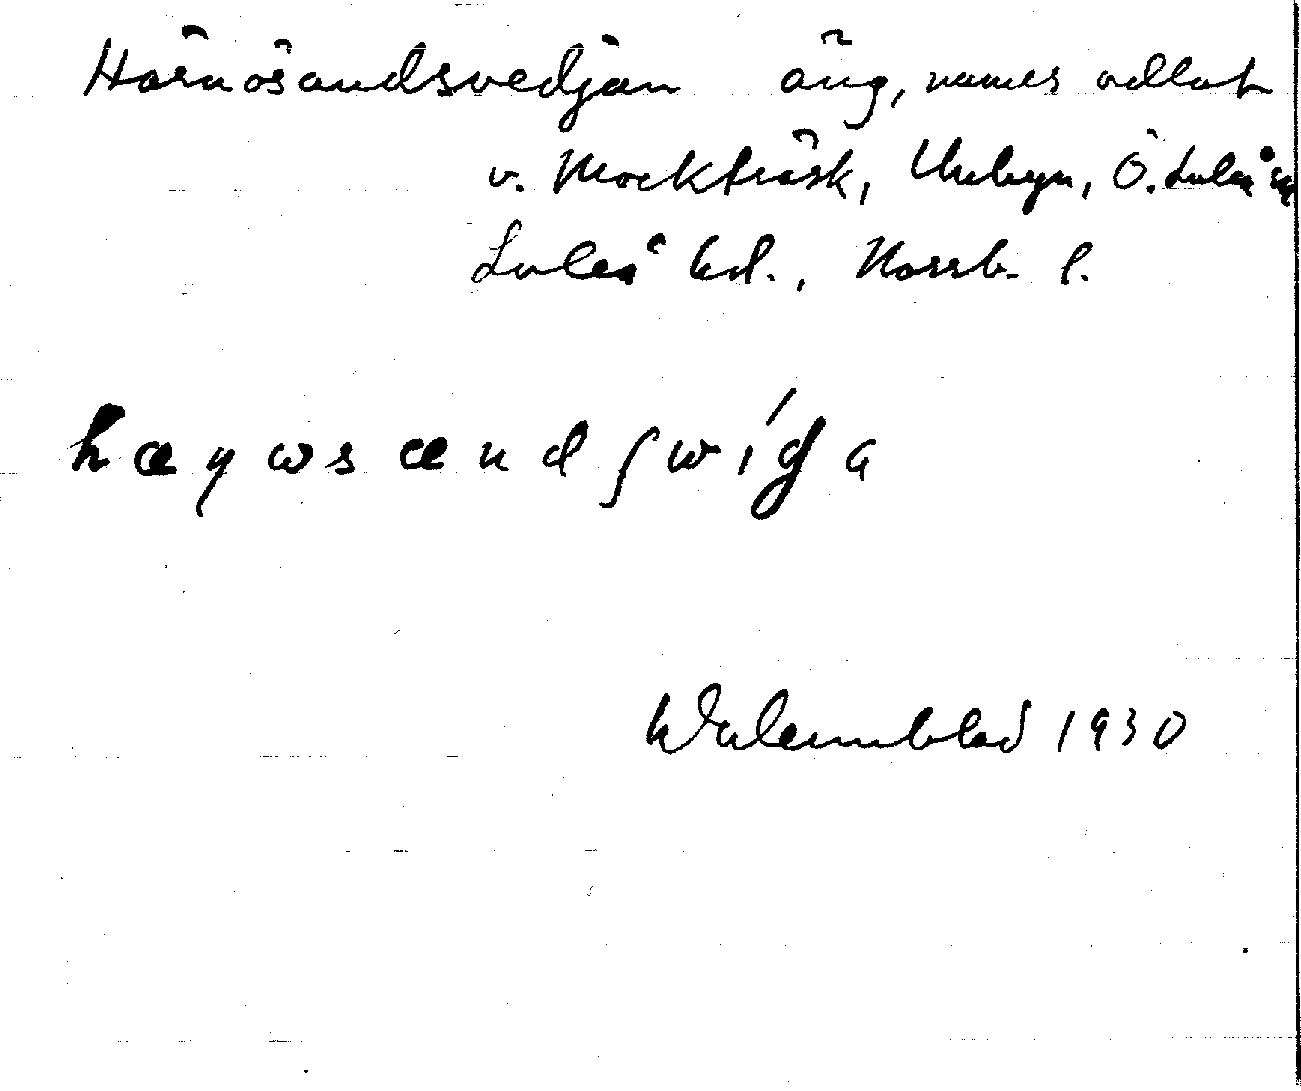 Härnösandsvedjan äng, numer odlat
v. Mockträsk, Unbyn, Ö. Luleå sn
Luleå td., Norrb. l.
hæywsændʃwídʒa
Wulemblad 1930